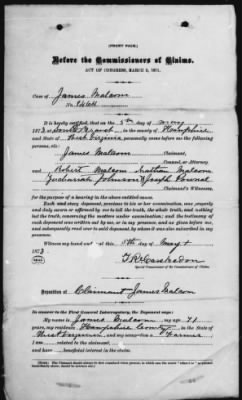 [FRONT PAGE.]
Before the Commissioners of Claims.
ACT OF CONGRESS, MARCH 3, 1871.
Case of James Malcom
No.
It is hereby certified, that on the 5th day of May
1873, at Branch, in the county of Hampshire
and State of West Virginia, personally came before me the following
persons, viz:
James Malcom Claimant,
Counsel, or Attorney
and Robert Malcom Nathan Malcom
Zachariah Johnson &
Claimant's Witnesses,
for the purpose of a hearing in the above entitled cause.
Each and every deponent, previous to his or her examination, was properly
and duly sworn or affirmed by me to tell the truth, the whole truth, and nothing
but the truth, concerning the matters under examination; and the testimony of
each deponent was written out by me, or in my presence, and as given before me,
and subsequently read over to said deponent, by whom it was also subscribed in my
presence.
Witness my hand and this 5th day of May
1873.
Special Commissioner of the Commissioners of Claims.
Deposition of Claimant James Malcom
In answer to the First General Interrogatory, the Deponent says:
My name is James Malcom, my age 71
years, my residence Hampshire County, in the State of
West Virginia, and my occupation a Farmer
I am related to the claimant, and
have beneficial interest in the claim.